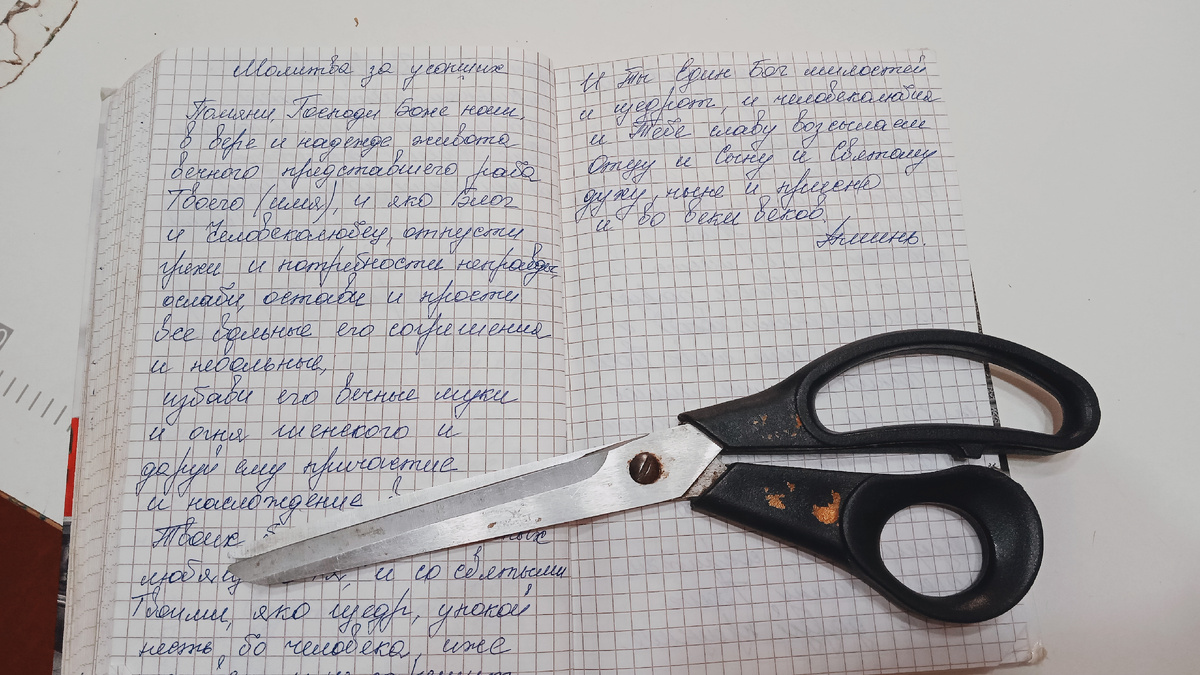 Молитва за усопших
Помяни, Господи Боже наш,
в вере и надежде живота
вечного представшего раба
Твоего (имя), и яко Благ
и Человеколюбец, отпусти
грехи и потребности неправды,
ослаби, остави и прости
все вольные его согрешения
и невольные,
избави его вечные муки
и огня гиенского и
даруй ему причастие
и наслождение
Твоих
и со святыми
Твоими, яко щедр, упокой
несть бо человека, иже
И Ты един Бог милостей
и щедрот, и человеколюбия
и Тебе славу возсылаем
Отцу и Сыну и Святому
духу, ныне и присно
и во веки веков.
Аминь.